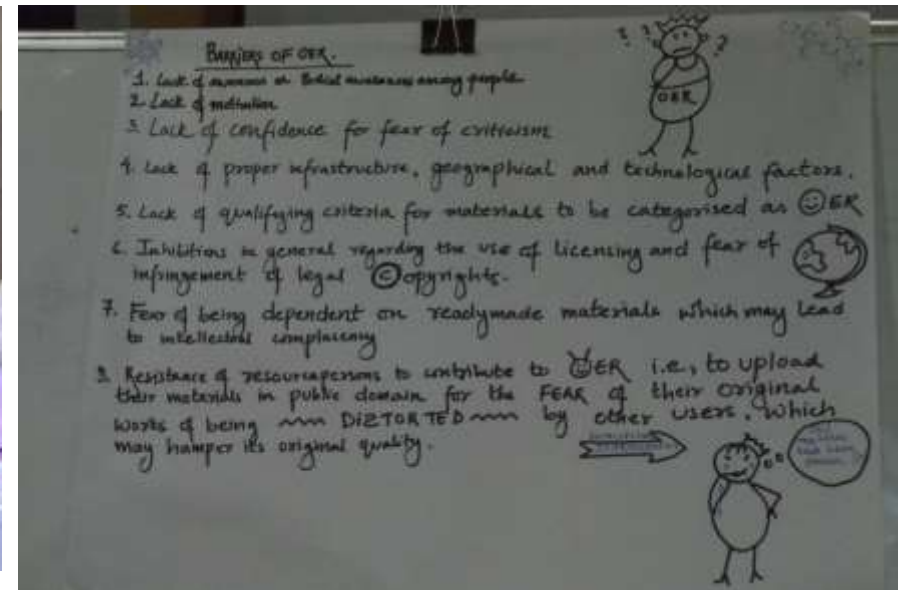 BARRIERS OF OER.
1. Lack of awareness or awareness among people
2. Lack of motivation
3. Lack of confidence for fear of criticism
4. Lack of proper infrastructure, geographical and technological factors.
5. Lack of qualifying criteria for materials to be categorised as OER
6. Inhibitions in general regarding the use of licensing and fear of
infringement of legal ©opyrights.
7. Fear of being dependent on readymade materials which may lead
to intellectual complacency
8. Resistance of resourcepersons to contribute to OER i.e., to upload
their materials in public domain for the FEAR of their original
works of being DISTORTED by other users, which
may hamper its original quality.
? ? ?
OER